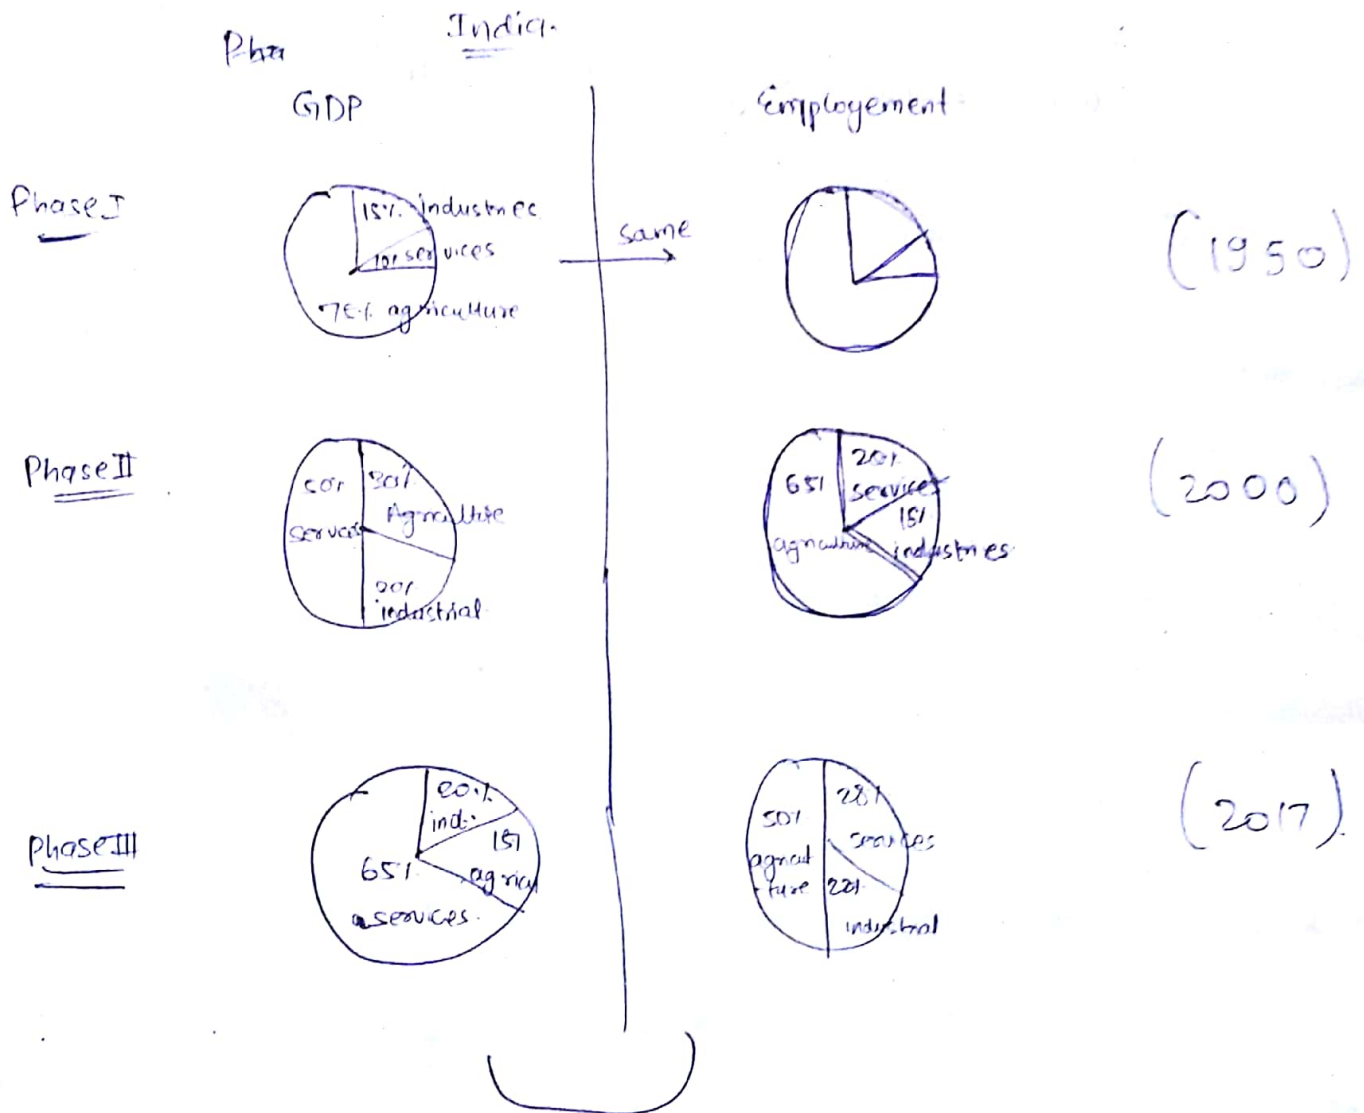 India.
Pha
GDP
Employement
Phase I
15%. industries
10% services
75% agriculture
same
(1950)
Phase II
50% services
30% Agriculture
20% industrial
65% agriculture
20% services
15% industries
(2000)
Phase III
20.% ind.
15% agricul
65% services.
50% agricul
ture
28% services
22% industrial
(2017).